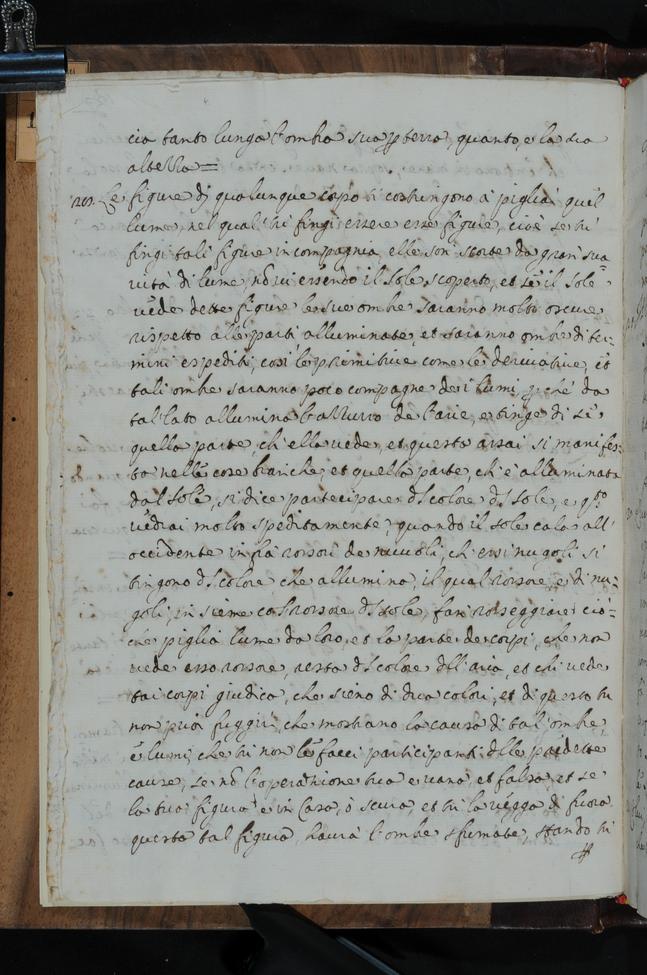 cia tanto lunga l'ombra sua p terra, quanto, e la sua
altezza =
Le figure dj qualunque corpo ti costringono à pigliar quel
lume, nel qual' tù fingi essere esse figure, cioè se tù
fingi tali figure in compagnia, elle son scorte da gran' sua
vità di lume, nō vi essendo il sole scoperto, et se il sole
vede dette figure le sue ombre saranno molto oscure
rispetto alle parti alluminate, et saranno ombre di ter:
mini espediti, così le primitive come le derivative, et
tali ombre saranno poco compagne de i lumi, p ché da
tal' lato allumina l'azzurro de l'arie, e tinge di sè
quella parte ch' ella vede, et questo assai si manifes-
ta nelle cose bianche, et quella parte, ch' è alluminata
dal sole, si dice partecipare dl colore dl sole, e qsto
vedrai molto speditamente, quando il sole cala all'
occidente infrà rossori de nuvoli, ch' essi nugoli si
tingono dl colore che allumina, il qual rossore, e di nu:
goli, in sieme col rossore dl sole, fan' rosseggiare ciò=
che piglia lume da loro, et la parte de corpi, che non
vede esso rossore, resta dl colore dll' aria, et chi vede
tai corpi giudica, che sieno di dua colori, et di questo tu
non puoi fuggir, che mostrano la causa di tal' ombre,
e lumi, che tù non le facci participanti dlle predette
cause, se nō l'operatione tua e vana, et falsa, et se
la tua figura è in Casa, ò scura, et tù la vegga di fuora
questa tal figura, haurà l'ombre sfumate, stando tù